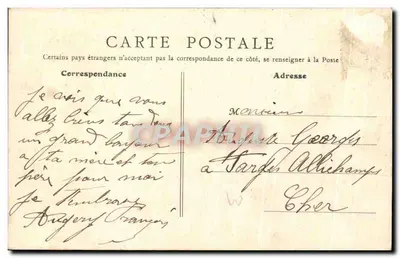 CARTE POSTALE
Certains pays étrangers n'acceptant pas la correspondance de ce côté, se renseigner à la Poste
Correspondance
Adresse
je vois que vous
allez bien tous
un grand bonjour
a ta mère et ton
père pour moi
je t'embrasse
François
Monsieur
Auguste Georges
a Farges Allichamps
Cher